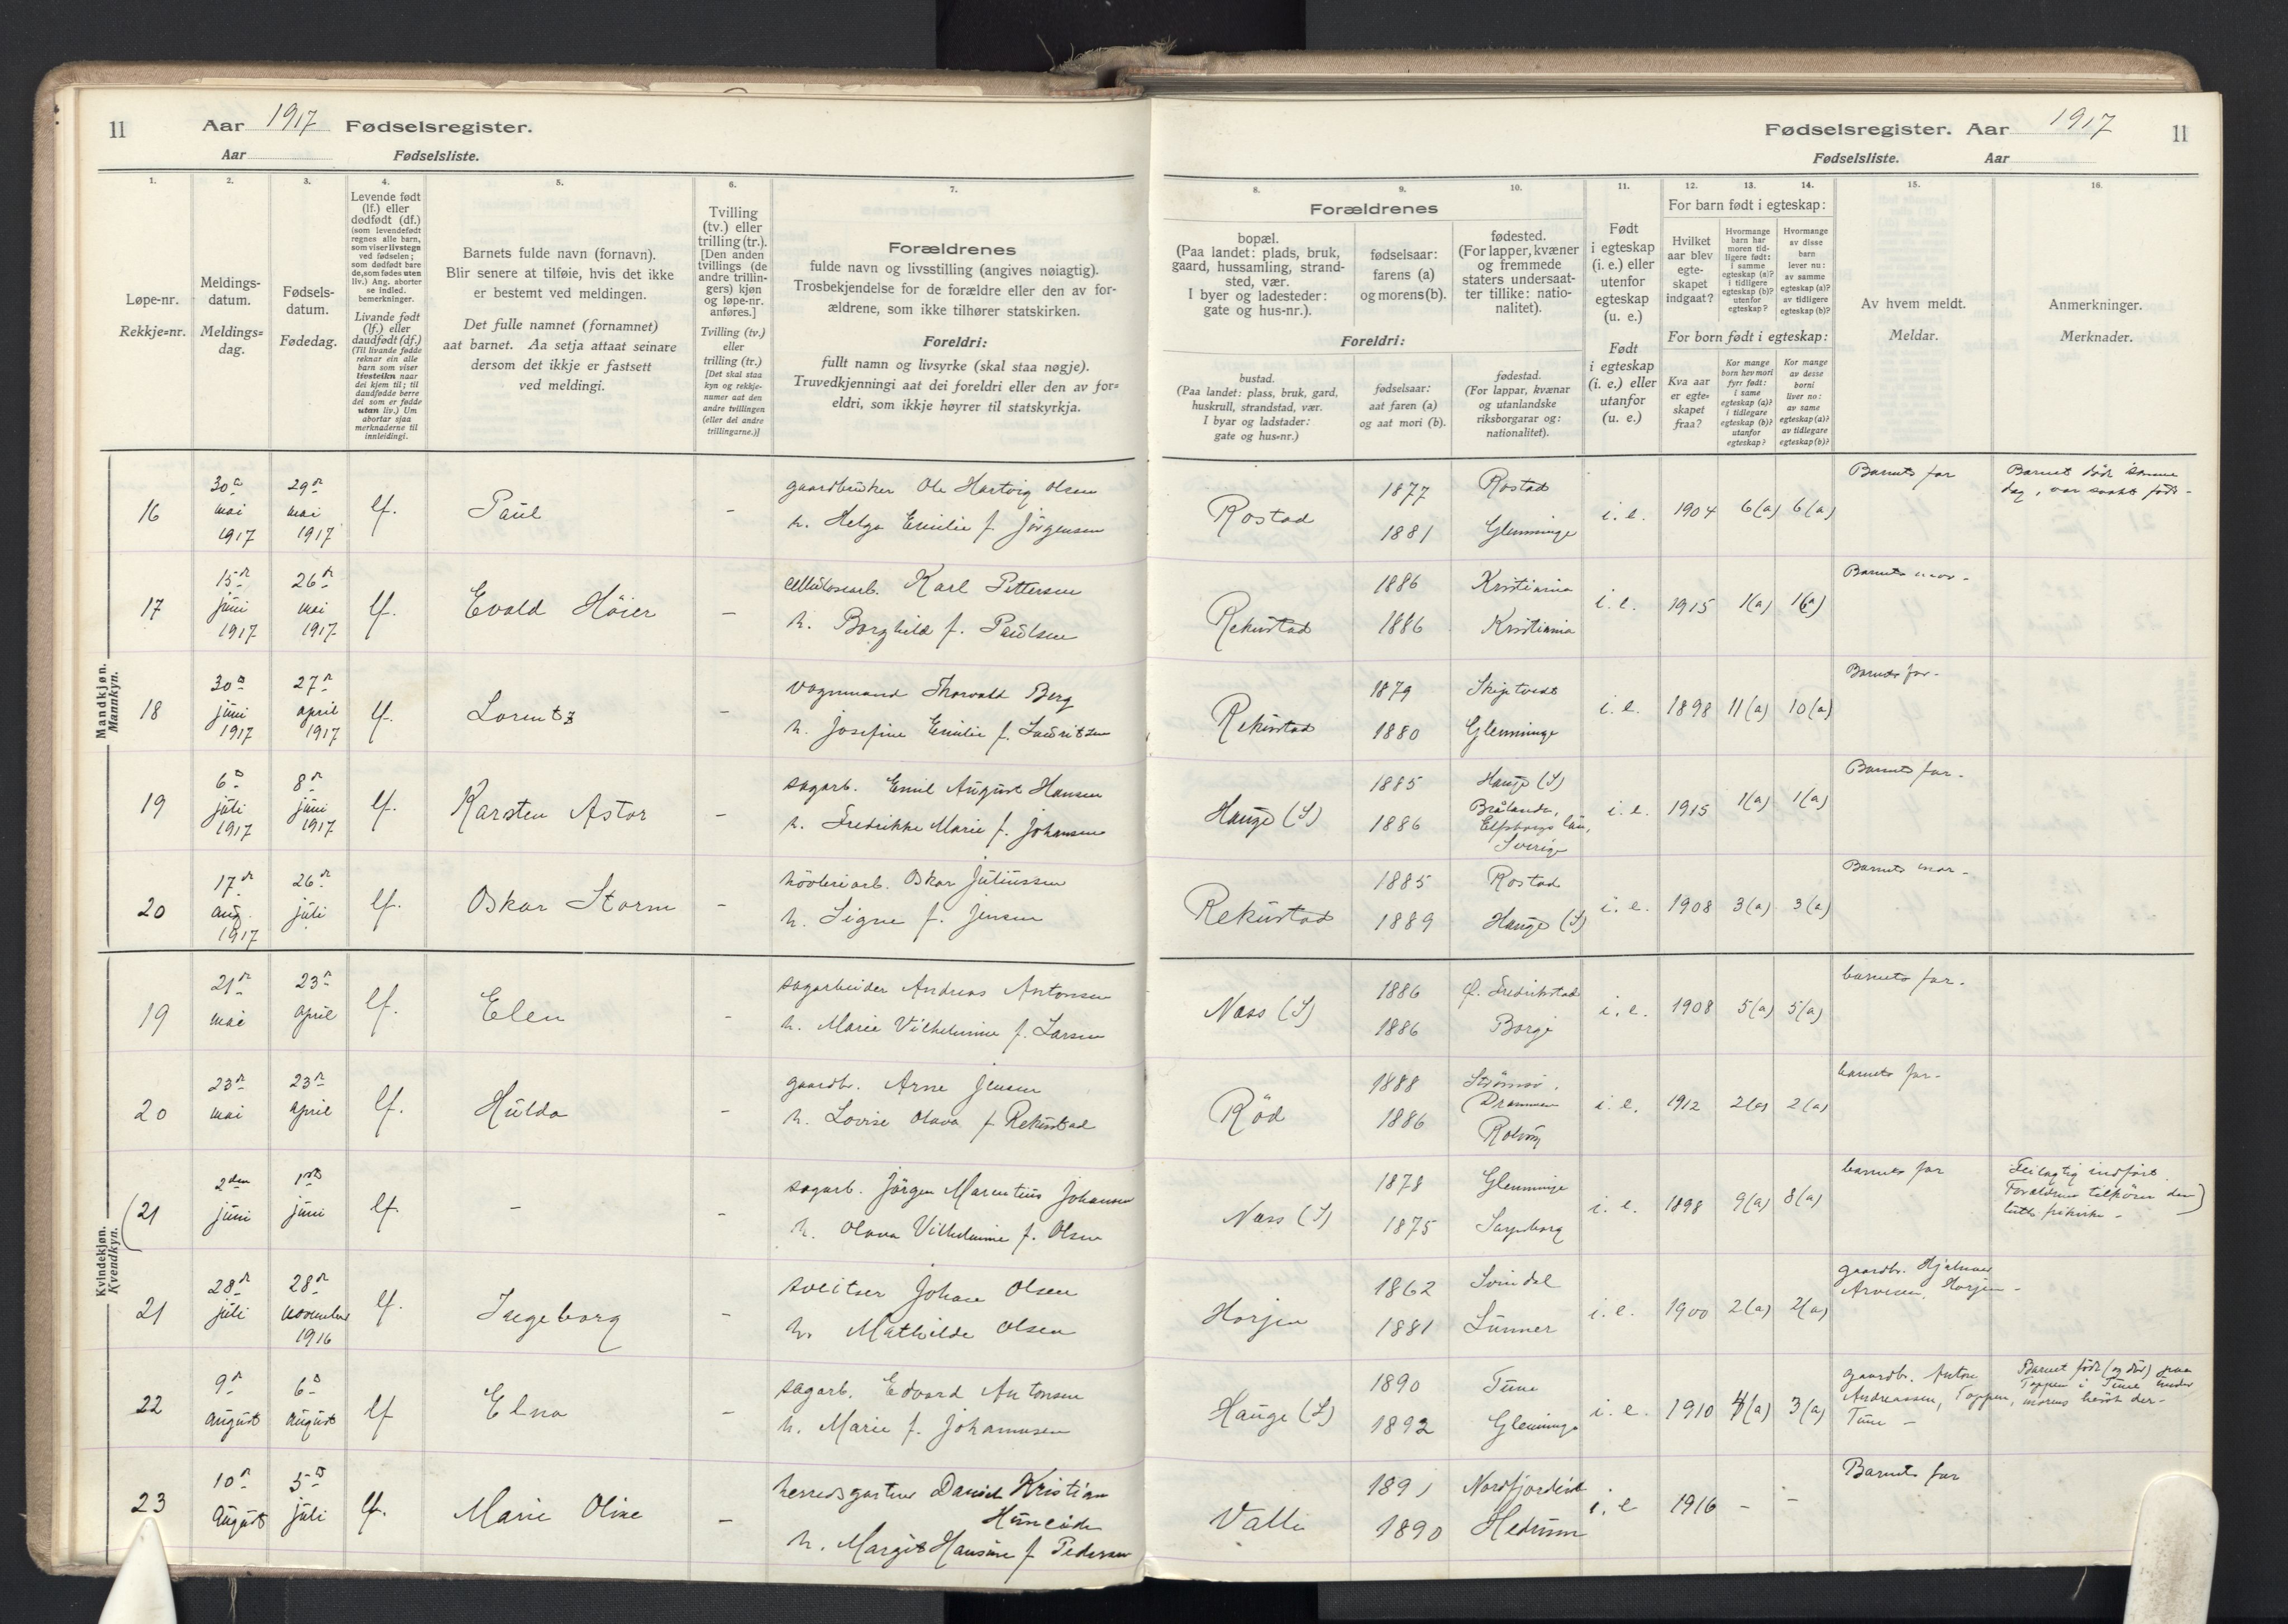 11 Aar 1917 Fødselsregister.
Aar Fødselsliste.
Fødselsregister. Aar 1917 11
Fødselsliste. Aar
1.
Løpe-nr.
Rekkje=nr.
2.
Meldings-
datum.
Meldings=
dag.
3.
Fødsels-
datum.
Fødedag.
4.
Levende født
(lf.) eller
dødfødt (df.)
(som levendefødt
regnes alle barn,
som viser livstegn
ved fødselen;
som dødfødt bare
de, som fødes uten
liv.) Ang. aborter
se indled.
bemerkninger.
Livande født
(lf.) eller
daudfødt (df.)
(Til livande fødde
reknar ein alle
barn som viser
livsteikn naar
dei kjem til; til
daudfødde berre
dei som er fødde
utan liv.) Um
abortar sjaa
merknaderne til
innleidingi.
5.
Barnets fulde navn (fornavn).
Blir senere at tilføie, hvis det ikke
er bestemt ved meldingen.
Det fulle namnet (fornamnet)
aat barnet. Aa setja attaat seinare
dersom det ikkje er fastsett
ved meldingi.
6.
Tvilling
(tv.) eller
trilling (tr.).
[Den anden
tvillings (de
andre trillin-
gers) kjøn
og løpe-nr.
anføres.]
Tvilling (tv.)
eller
trilling (tr.)
[Det skal staa
kyn og rekkje-
numer aat den
andre tvillingen
(eller dei andre
trillingarne.)]
7.
Forældrenes
fulde navn og livsstilling (angives nøiagtig).
Trosbekjendelse for de forældre eller den av for-
ældrene, som ikke tilhører statskirken.
Foreldri:
fullt namn og livsyrke (skal staa nøgje).
Truvedkjenningi aat dei foreldri eller den av for=
eldri, som ikkje høyrer til statskyrkja.
8. 9. 10.
Forældrenes
bopæl.
(Paa landet: plads, bruk,
gaard, hussamling, strand-
sted, vær.
I byer og ladesteder:
gate og hus-nr.).
fødselsaar:
farens (a)
og morens (b).
fødested.
(For lapper, kvæner
og fremmede
staters undersaat-
ter tillike: natio-
nalitet).
Foreldri:
bustad.
(Paa landet: plass, bruk, gard,
huskrull, strandstad, vær.
I byar og ladstader:
gate og hus=nr.)
fødselsaar:
aat faren (a)
og aat mori (b).
fødestad.
(For lappar, kvænar
og utanlandske
riksborgarar og:
nationalitet).
11.
Født
i egteskap
(i. e.) eller
utenfor
egteskap
(u. e.)
Født
i egteskap
(i. e.) eller
utanfor
(u. e.)
12. 13. 14.
For barn født i egteskap:
Hvilket
aar blev
egte-
skapet
indgaat?
Hvormange
barn har
moren tid-
ligere født:
i samme
egteskap (a)?
i tidligere
egteskap (b)?
utenfor
egteskap?
Hvormange
av disse
barn
lever nu:
av samme
egteskap (a)?
av tidligere
egteskap (b)?
For born født i egteskap:
Kva aar
er egte=
skapet
fraa?
Kor mange
born hev mori
fyrr født:
i same
egteskap (a)?
i tidlegare
egteskap (b)?
utanfor
egteskap?
Kor mange
av desse
borni
liver no:
av same
egteskap (a)?
av tidlegare
egteskap (b)?
15.
Av hvem meldt.
Meldar.
16.
Anmerkninger.
Merknader.
Mandkjøn.
Mannkyn.
16 30te mai 1917 29de mai 1917 lf. Paul -
gaardbruker Ole Hartvig Olsen
h. Helga Emilie f. Jörgensen
Rostad 1877 Rostad
1881 Glemminge
i. e. 1904 6(a) 6(a) Barnets far
Barnet døde samme
dag, var svakt født-
17 15de juni 1917 26de mai 1917 lf. Evald Höier -
cellulosearb. Karl Pettersen
h. Borghild f. Paulsen
Rekustad 1886 Kristiania
1886 Kristiania
i. e. 1915 1(a) 1(a) Barnets mor-
18 30te juni 1917 27de april 1917 lf. Lorentz -
vognmand Thorvald Berg
h. Josefine Emilie f. Lauritzen
Rekustad 1879 Skiptvedt
1880 Glemminge
i. e. 1898 11(a) 10(a) Barnets far-
19 6te juli 1917 8de juni 1917 lf. Karsten Astor -
sagarb. Emil August Hansen
h. Fredrikke Marie f. Johansen
Hauge (S) 1885 Hauge (S)
1886 Brålanda,
Elfsborgs län,
Sverige
i. e. 1915 1(a) 1(a) Barnets far-
20 17de aug. 1917 26de juli lf. Oskar Storm -
hövleriarb. Oskar Juliussen
h. Signe f. Jensen
Rekustad 1885 Rostad
1889 Hauge (S)
i. e. 1908 3(a) 3(a) Barnets mor-
Kvindekjøn.
Kvendkyn.
19 21de mai 23de april lf. Elen -
sagarbeider Andreas Antonsen
h. Marie Vilhelmine f. Larsen
Næss (S) 1886 Fredrikstad
1886 Borge
i. e. 1908 5(a) 5(a) barnets far.
20 23de mai 23de april lf. Hulda -
gaardbr. Arne Jensen
h. Lovise Olava f Rekustad
Röd 1888 Strömsö,
Drammen
1886 Rolvsöy
i. e. 1912 2(a) 2(a) barnets far-
(21 2den juni 1ste juni lf. - -
sagarb. Jörgen Marentius Johansen
h. Olava Vilhelmine f. Olsen
Næss (S) 1878 Glemminge
1875 Sarpsborg
i. e. 1898 9(a) 8(a) barnets far
Feilagtig indført.
Forældrene tilhører den
luth. frikirke-)
21 28de juli 28de november 1916 lf. Ingeborg -
sveitser Johan Olsen
h. Mathilde Olsen
Horjen 1862 Svindal
1881 Lunner
i. e. 1900 2(a) 2(a)
gaardbr. Hjalmar
Arvesen, Horjen-
22 9de august 6te august lf Elna -
sagarb. Edvard Antonsen
h. Marie f. Johannesen
Hauge (S) 1890 Tune
1892 Glemminge
i. e. 1910 4(a) 3(a)
gaardbr. Anton
Andreassen, Toppen,
Tune -
Barnet født (og død) paa
Toppen i Tune under
morens besøk der-
23 10de august 5te juli lf. Marie Oline -
herredsgartner Daniel Kristian
Huneide
h. Margit Hansine f Pedersen
Valle 1891 Nordfjordeid
1890 Hedrum
i. e 1916 - - Barnets far